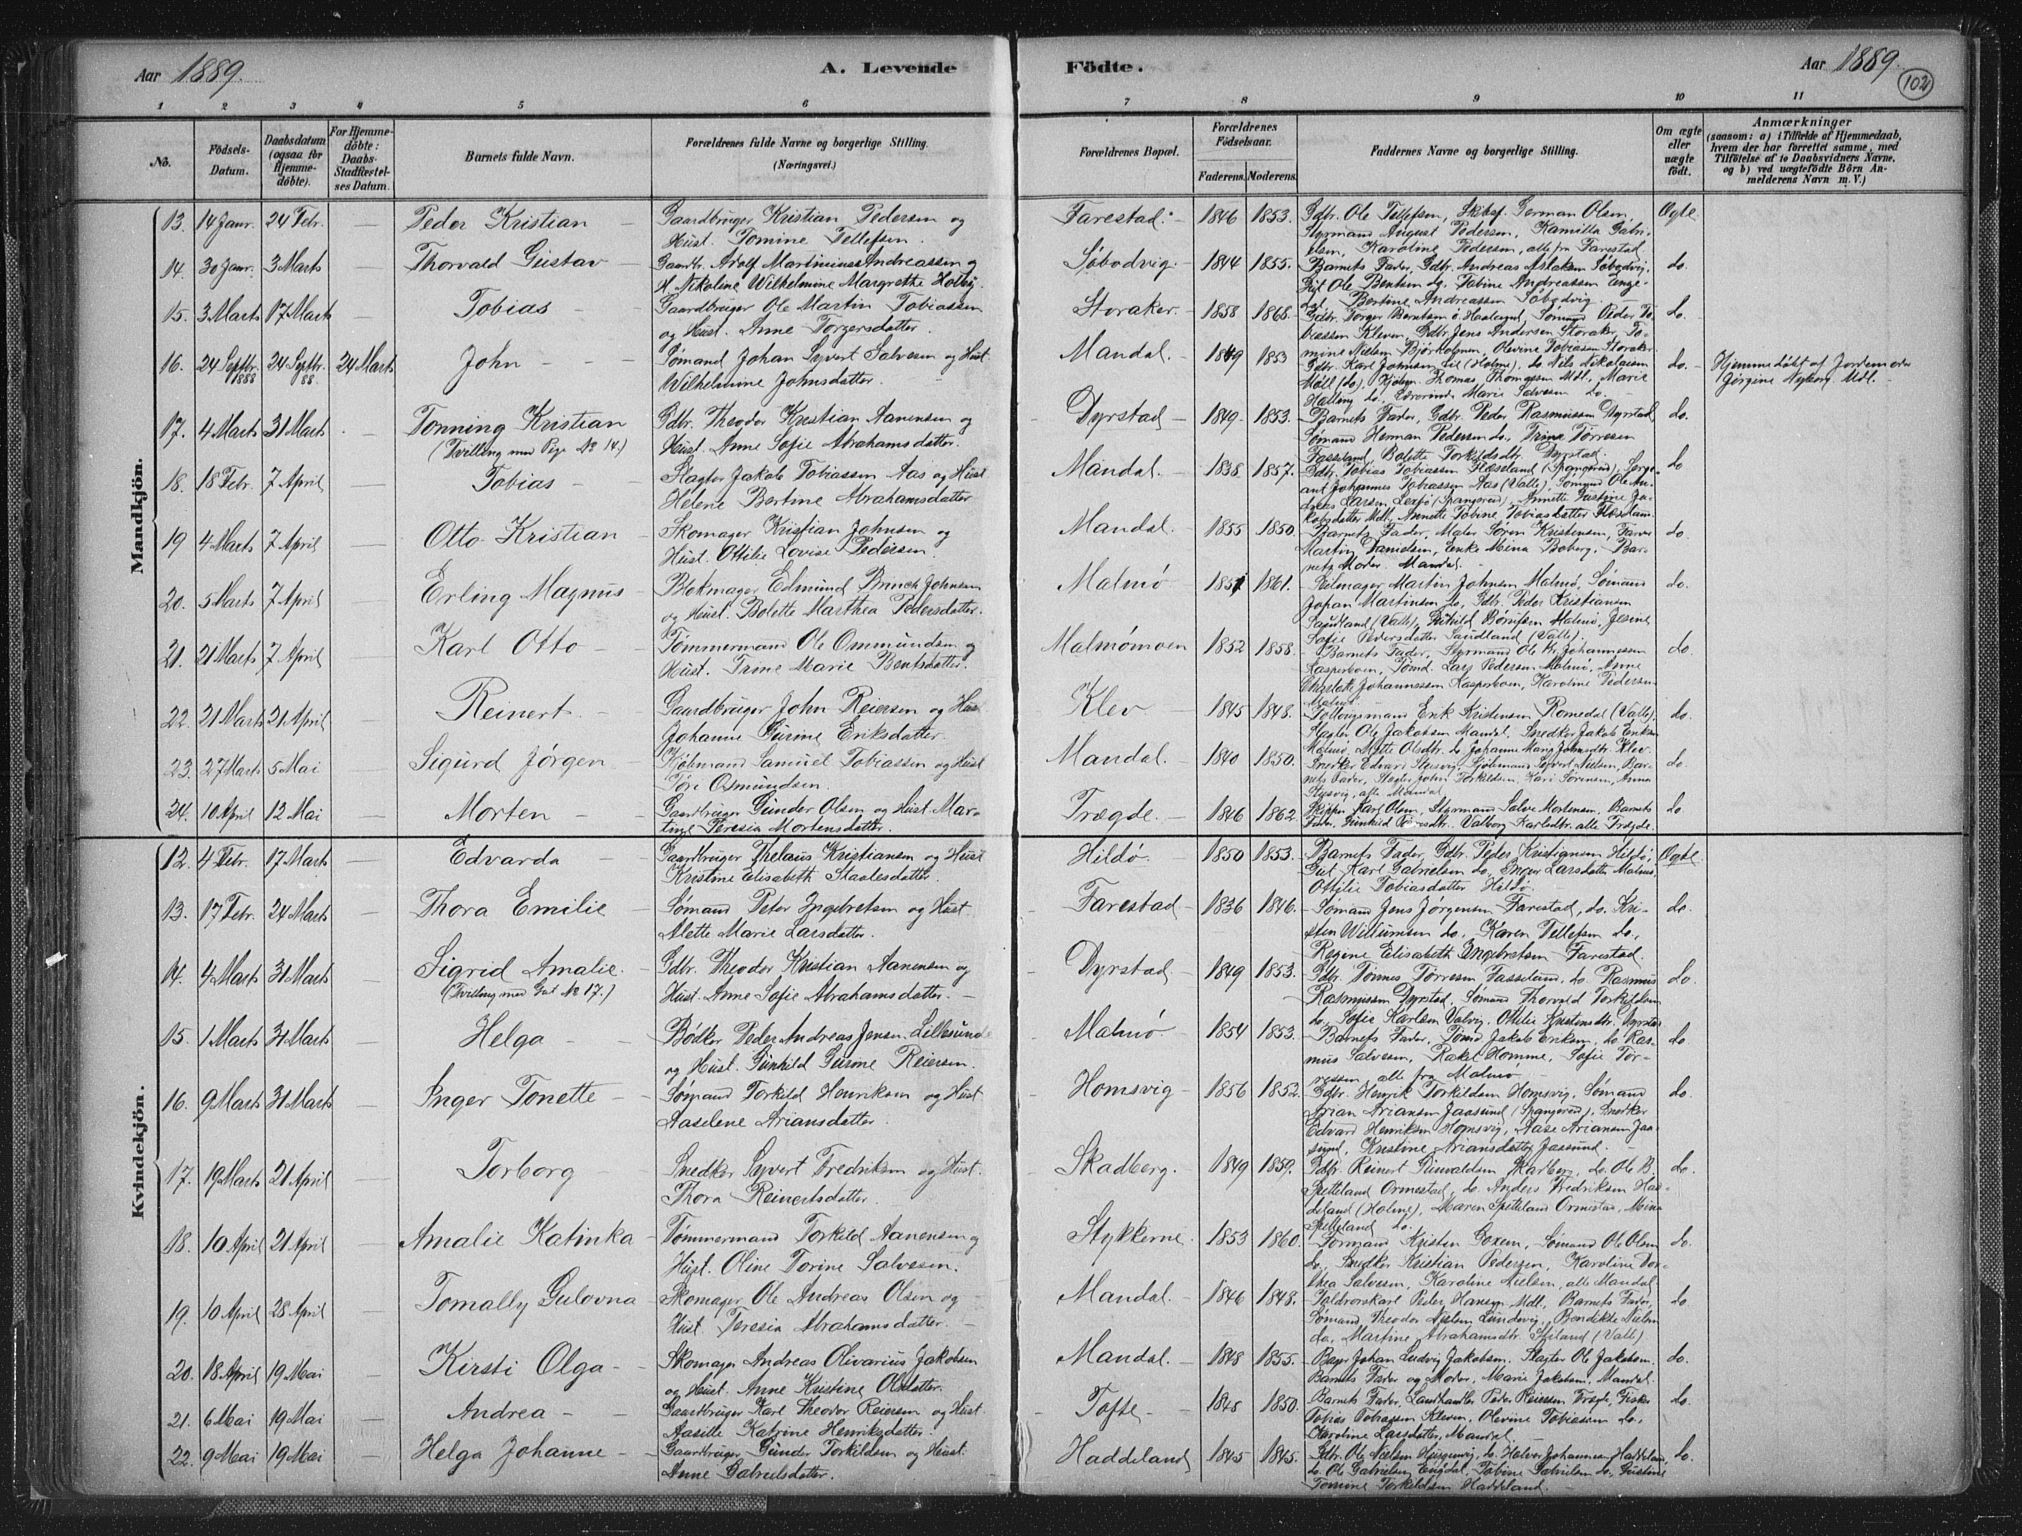 Aar 1889.
A. Levende Födte.
Aar 1889.
102
1 2 3 4 5 6 7 8 9 10 11
No.
Födsels-Datum.
Daabsdatum (ogsaa for Hjemme-döbte).
For Hjemme-döbte: Daabs-Stadfæstel-ses Datum.
Barnets fulde Navn.
Forældrenes fulde Navne og borgerlige Stilling. (Næringsvei.)
Forældrenes Bopæl.
Forældrenes Födselsaar.
Faderens. Moderens.
Faddernes Navne og borgerlige Stilling.
Om ægte eller uægte födt.
Anmærkninger
(saasom: a) i Tilfælde af Hjemmedaab,
hvem der har forrettet samme, med
Tilföielse af to Daabsvidners Navne,
og b) ved uægtefödte Börn An-
melderens Navn m. V.)
Mandkjön.
13. 14 Janr. 24 Febr. — Peder Kristian — Gaardbruger Kristian Pedersen og
Hust. Tomine Tellefsen.
Farestad. — 1846 1853. Gdbr. Ole Tellefsen, Skibsf. German Olsen,
Styrmand August Pedersen, Kamilla Gabri-
elsen, Karoline Pedersen, alle fra Farestad.
Ægte
14. 30 Janr. 3 Marts — Thorvald Gustav — Gaardbr. Adolf Martinius Andreassen og
H. Nikoline Wilhelmine Margrethe
Søbodvig. 1844 1855. Barnets Fader, Gdbr. Andreas Aslaksen Søbodvig,
Ole Bentsen do, Tobine Andreassen
Bertine Andreassen Søbodvig.
do.
15. 3 Marts 17 Marts — Tobias — Gaardbruger Ole Martin Tobiassen
og Hust. Anne Torgersdatter.
Storaker. 1858 1868. Gdbr. Torger Berntsen
biassen Kleven, Gdbr. Jens Andersen Storaker, To-
mine Nielsen Bjørkholmen, Olevine Tobiassen Storaker
do.
16. 24 Septbr. 1888 24 Septbr. 88. 24 Marts John — Sømand Johan Syvert Salvesen og Hust.
Wilhelmine Johnsdatter.
Mandal. 1849 1853 Gdbr. Karl Johnsen (Holme), do Nils Nikolaisen
Møll (do), Thomas Thomassen Mdl., Marie
do, Marie Salvesen do.
do. Hjemmedøbt af Jordemoder
Gjørgine Nyborg Mdl.
17. 4 Marts 31 Marts — Tønning Kristian
(Tvilling med Pige No 14.)
Gdbr. Theodor Kristian Aanensen og
Hust. Anne Sofie Abrahamsdatter.
Dyrstad — 1849. 1853. Barnets Fader, Gdbr. Peder Rasmussen Dyrstad,
Sømand Herman Pedersen do, Trine Tørresen
Fasseland, Bolette Torkildsdtr. Dyrstad.
do.
18. 18 Febr. 7 April — Tobias — Slagter Jakob Tobiassen Aas og Hust
Helene Bertine Abrahamsdatter
Mandal. 1838 1857. Gdbr. Tobias Tobiassen (Spangereid), Serge-
ant Johannes Tobiassen Aas (Valle), Sømand Ole An-
dreas Larsen (Spangereid), Annette Justine Ja-
kobsdatter Mdl., Annette Tobine Tobiasdatter
do
19 4 Marts 7 April — Otto Kristian — Skomager Kristian Johnsen og
Hust. Ottilie Lovise Pedersen.
Mandal. 1855 1850. Barnets Fader, Maler Søren Kristensen, Farver
Martin Danielsen, Enke Mina Boberg, Bar-
nets Moder. Mandal.
do
20. 5 Marts 7 April — Erling Magnus — Blokmager Edmund Brinch Johnsen
og Hust. Bolette Marthea Pedersdatter.
Malmø 1851 1861. Seilmager Martin Johnsen Malmø, Sømand
Johan Martinsen do, Gdbr. Peder Kristiansen
Sandland (Valle), Malmø, Jesine
Sofie Pedersdatter Sandland (Valle).
do.
21. 21 Marts 7 April — Karl Otto — Tømmermand Ole Ommundsen og
Hust. Trine Marie Bentsdatter.
Malmømoen 1852 1858. Barnets Fader, Styrmand Ole Kr. Johannessen
Kasperboen, Tømd. Lars Pedersen Malmø, Anne
Charlotte Johannessen Kasperboen, Karoline Pedersen
Malmø.
do.
22. 21 Marts 21 April — Reinert — Gaardbruger John Reiersen og Hust
Johanne Gurine Eriksdatter.
Klev — 1845 1848. Erik Kristensen Romedal (Valle),
Slagter Ole Jakobsen Mandal, Snedker Jakob Eriksen
Malmø, Mette Olsdtr. do, Johanne Marg. Johnsdtr. Klev
do.
23. 27 Marts 5 Mai — Sigurd Jørgen — Kjøbmand Samuel Tobiassen og Hust
Tøri Osmundsen.
Mandal — 1840 1850. Snedker Edvard Stusvig, Kjøbmand Syvert Nielsen, Bar-
nets Fader, Slagter John Torkildsen, Kari Sørensen, Anna
Stusvig, alle Mandal
do.
24. 10 April 12 Mai — Morten — Gaardbruger Gunder Olsen og Hust Mar-
tine Teresia Mortensdatter.
Trægde. — 1846 1862. Skipper Karl Olsen, Styrmand Salve Mortensen, Barnets
Fader, Gunhild Valborg Karlsdtr. alle Trægde.
do
Kvindekjön.
12. 4 Febr. 17 Marts — Edvarda — Gaardbruger Thelaus Kristiansen og Hust
Kristine Elisabeth Staalesdatter.
Hildø. — 1850 1853. Barnets Fader, Gdbr. Peder Kristiansen Hildø,
Gut Karl Gabrielsen do, Inger Larsdatter Malmø,
Ottilie Tobiasdatter Hildø.
Ægte
13. 17 Febr. 24 Marts — Thora Emilie — Sømand Peter Ingebretsen og Hust.
Alette Marie Larsdatter.
Farestad — 1836 1846. Sømand Jens Jørgensen Farestad, do. Kri-
sten Willumsen do, Karen Tellefsen do,
Regine Elisabeth Ingebretsen Farestad.
do.
14. 4 Marts 31 Marts — Sigrid Amalie.
(Tvilling med Gut No 17.)
Gdbr. Theodor Kristian Aanensen og
Hust. Anne Sofie Abrahamsdatter. —
Dyrstad — 1849 1853. Gdbr. Tønnes Tørresen Fasseland, do. Rasmus
Rasmussen Dyrstad, Sømand Thorvald Torkildsen
do, Sofie Karlsen Valvig, Ottilie Kristensdtr. Dyrstad
do.
15. 1 Marts 31 Marts — Helga — Bødker Peder Andreas Jensen Lillesund
og Hust. Gunhild Gurine Reiersen.
Malmø 1854 1853. Barnets Fader, Tømd. Jakob Eriksen, do Ras-
mus Salvesen, Rakel Homme, Sofie Tor-
ressen alle fra Malmø.
do
16. 9 Marts 31 Marts — Inger Tonette — Sømand Torkild Henriksen og Hust
Aaselene Ariansdatter.
Homsvig — 1856 1852. Gdbr. Henrik Torkildsen Homsvig, Sømand
Arian Ariansen Jaasund (Spangereid), Snedker
Edvard Henriksen Homsvig, Aase Ariansen Jaa-
sund, Kristine Ariansdatter Jaasund.
do.
17. 19 Marts 21 April — Torborg — Snedker Syvert Fredriksen og Hust.
Thora Reinertsdatter.
Skadberg. — 1849 1859. Gdbr. Reinert Skadberg, do. Ole B.
Spetteland Ormestad, do. Anders Fredriksen Had-
deland (Holme), Maren Spetteland Ormestad, Mina
Spetteland do.
do.
18. 10 April 21 April — Amalie Katinka — Tømmermand Torkild Aanensen og
Hust. Oline Torine Salvesen.
Stykkerne. 1853 1860. Formand Kristen Goxem, Sømand Ole Olsen
do, Snedker Kristian Pedersen, Karoline Dor-
thea Salvesen, Karoline Nielsen, alle Mandal
do.
19. 10 April 28 April — Tomally Gulovna Skomager Ole Andreas Olsen og
Hust. Teresia Abrahamsdatter. —
Mandal. — 1846 1848. Peder Hansen Mdl., Barnets Fader,
Sømand Theodor Nielsen Lundevig, Bendikte Nielsen
do, Martine Abrahamsdtr. (Valle)
do
20. 18 April 19 Mai — Kirsti Olga — Skomager Andreas Olivarius Jakobsen
og Hust. Anne Kristine Olsdatter.
Mandal. — 1848 1855. Johan Ludvig Jakobsen, Slagter Ole Jakobsen,
Barnets Fader og Moder, Marie Jakobsen, Mandal.
do.
21. 6 Mai 19 Mai — Andrea — Gaardbruger Karl Theodor Reiersen og Hust.
Aasille Katrine Henriksdatter.
Tofte. — 1848 1850. Barnets Fader, Landhandler Peder Reiersen Trægde, Fisker
Tobias Tobiassen Kleven, Olevine Tobiassen do,
Karoline Larsdatter, Mandal. —
do.
22. 9 Mai 19 Mai — Helga Johanne — Gaardbruger Gunder Torkildsen og Hust.
Anne Gabrielsdatter.
Haddeland 1845 1845. Gdbr. Ole Nielsen do. Halvor Johannsen Haddeland,
do Ole Gabrielsen Engdal, Tobine Gabrielsen do, Gustine
Tomine Torkildsen Haddeland.
do.